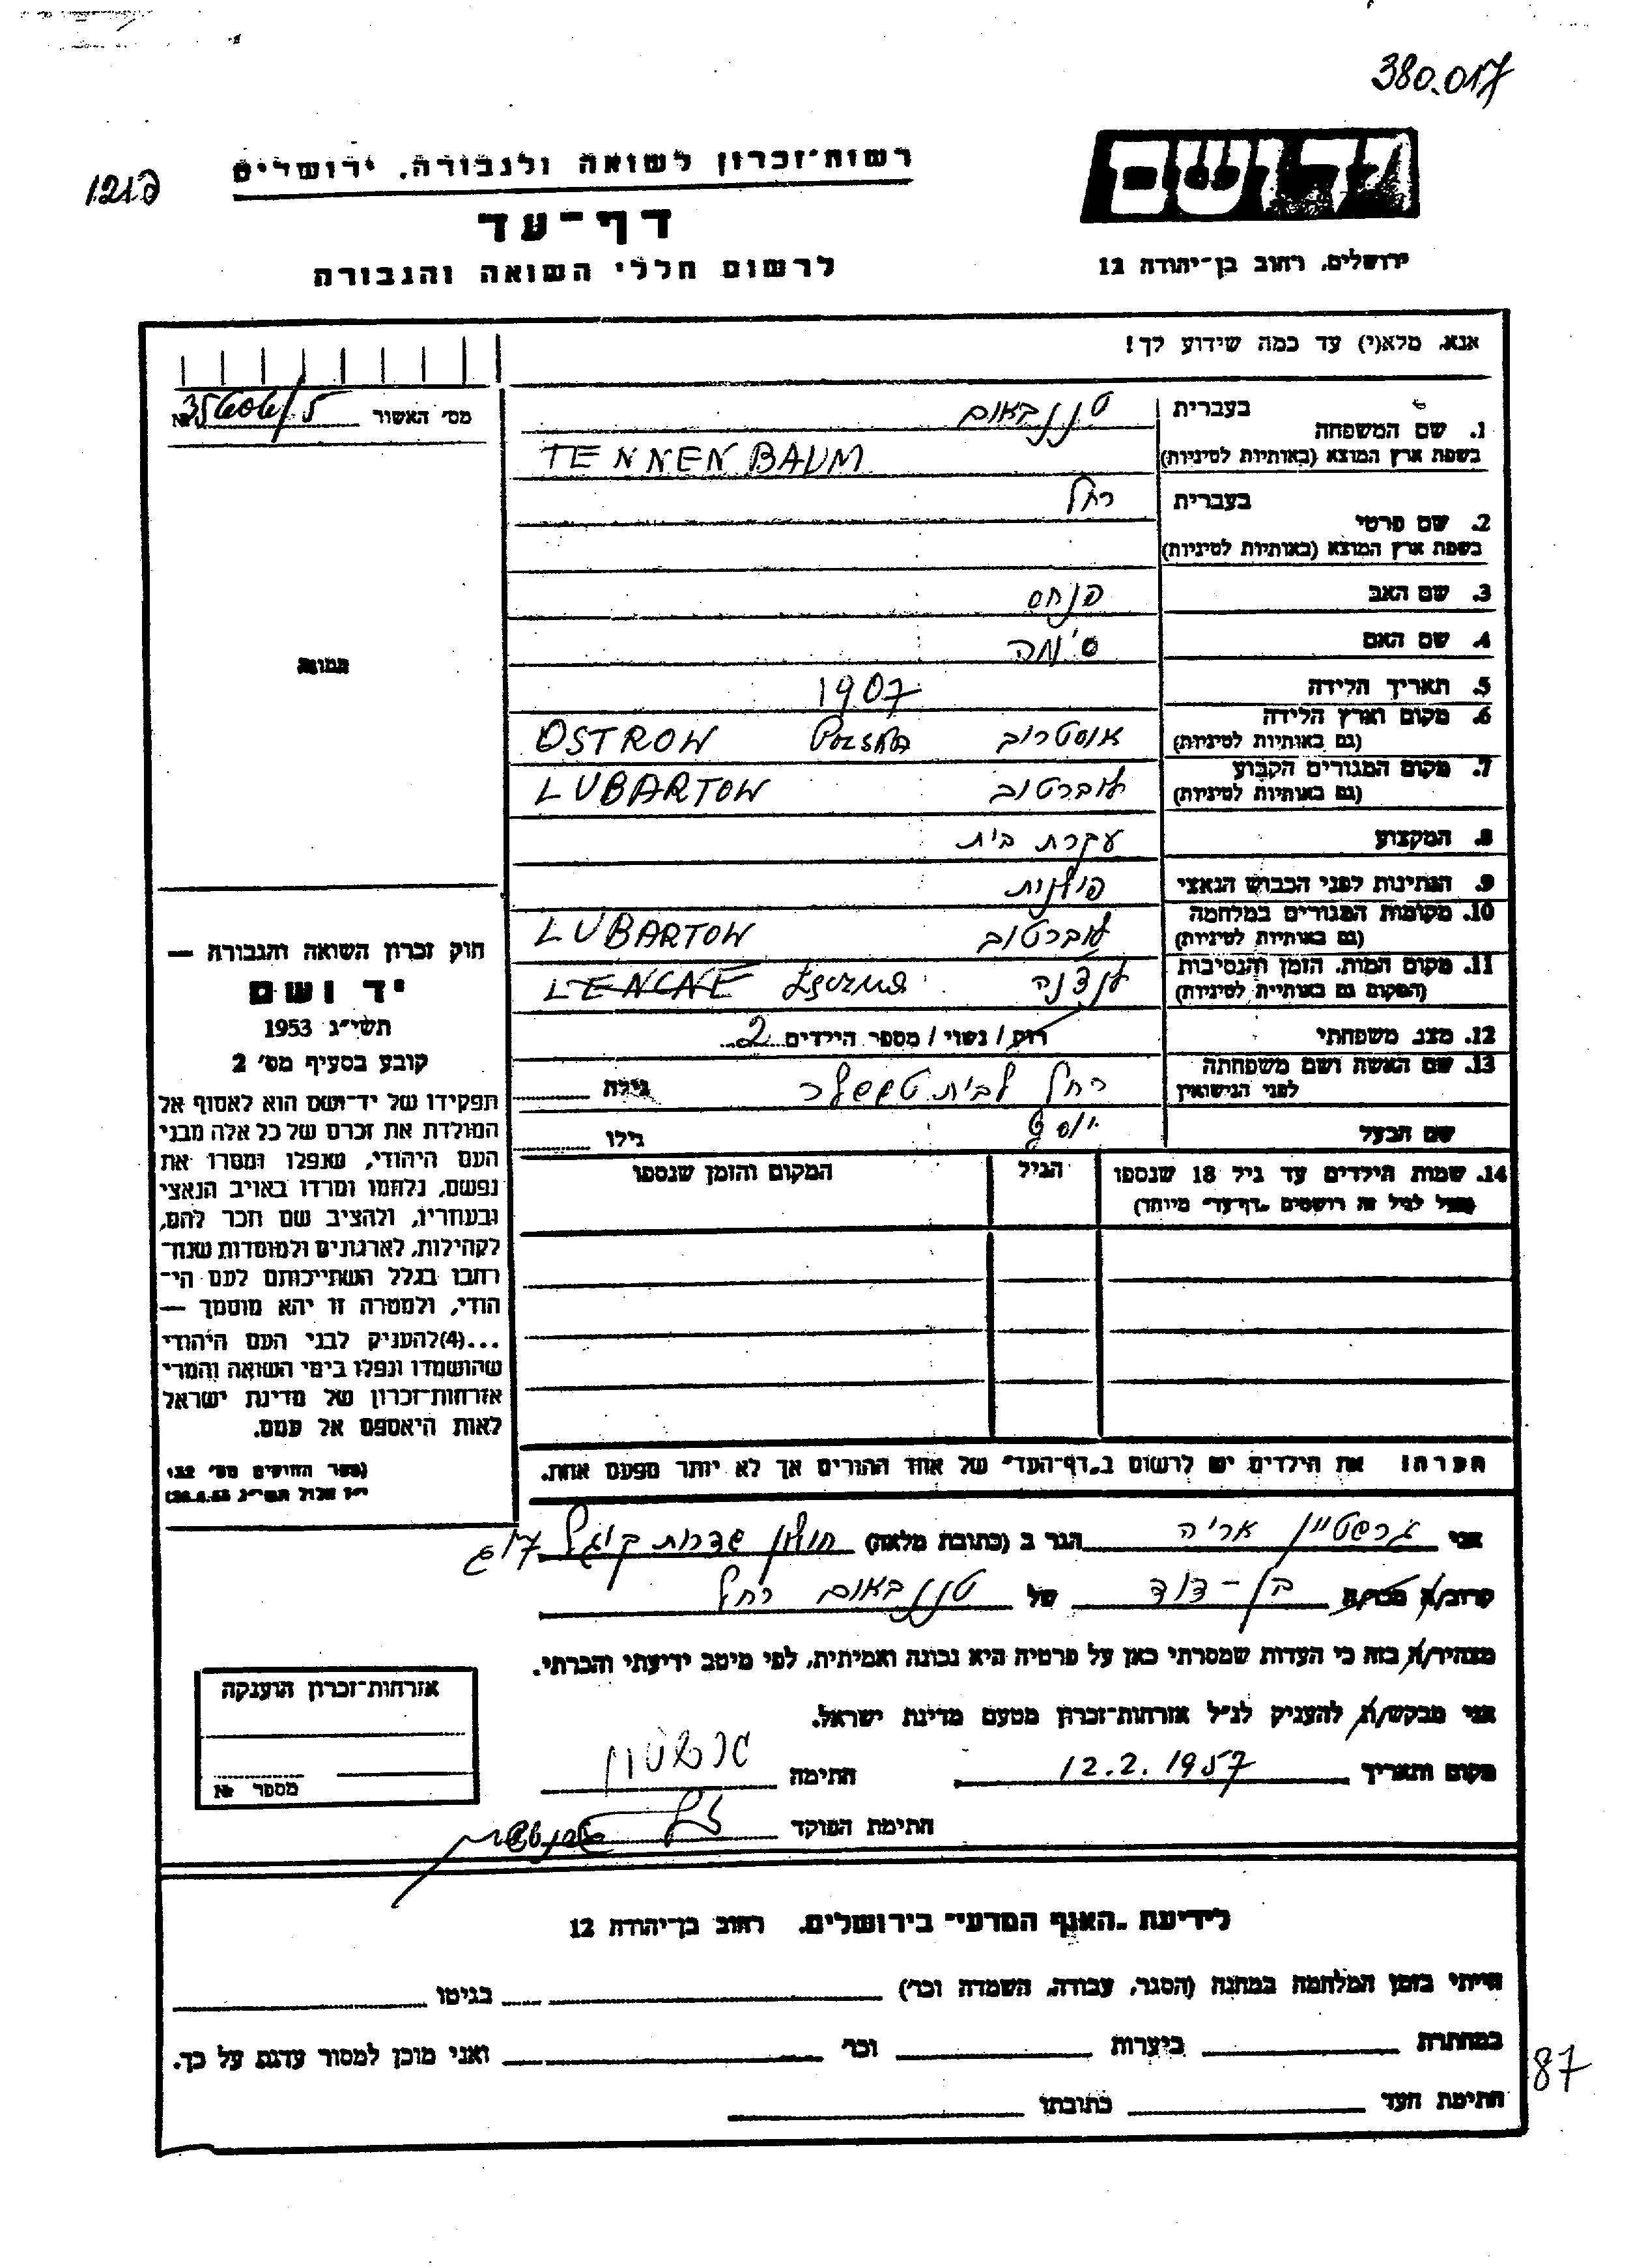 380.017
יד ושם
רשות-זכרון לשואה ולגבורה, ירושלים
דף-עד
לרשום חללי השואה והגבורה
ירושלים, רחוב בן-יהודה 12
אנא, מלא(י) עד כמה שידוע לך!
מס' האשור №
1. שם המשפחה בעברית טננבאום
בשפת ארץ המוצא (באותיות לטיניות) TENNENBAUM
2. שם פרטי בעברית רחל
בשפת ארץ המוצא (באותיות לטיניות)
3. שם האב פנחס
4. שם האם סימה
5. תאריך הלידה 1907
6. מקום וארץ הלידה (גם באותיות לטיניות) אוסטרוב Polska OSTROW
7. מקום המגורים הקבוע (גם באותיות לטיניות) לוברטוב LUBARTOW
8. המקצוע עקרת בית
9. הנתינות לפני הכבוש הנאצי פולנית
10. מקומות המגורים במלחמה (גם באותיות לטיניות) לוברטוב LUBARTOW
11. מקום המות, הזמן והנסיבות (המקום גם באותיות לטיניות) לנצ'נה
12. מצב משפחתי רווק / נשוי / מספר הילדים 2
13. שם האשה ושם משפחתה לפני הנישואין רחל לבית גילה
שם הבעל יוסף גילו
14. שמות הילדים עד גיל 18 שנספו הגיל המקום והזמן שנספו
(מעל לגיל זה רושמים "דף-עד" מיוחד)
הערה! את הילדים יש לרשום ב"דף-העד" של אחד ההורים אך לא יותר מפעם אחת.
תמונה
חוק זכרון השואה והגבורה —
יד ושם
תשי"ג 1953
קובע בסעיף מס' 2
תפקידו של יד-ושם הוא לאסוף אל
המולדת את זכרם של כל אלה מבני
העם היהודי, שנפלו ומסרו את
נפשם, נלחמו ומרדו באויב הנאצי
ובעוזריו, ולהציב שם וזכר להם,
לקהילות, לארגונים ולמוסדות שנח-
רבו בגלל השתייכותם לעם הי-
הודי, ולמטרה זו יהא מוסמך —
...(4) להעניק לבני העם היהודי
שהושמדו ונפלו בימי השואה והמרי
אזרחות-זכרון של מדינת ישראל
לאות היאספם אל עמם.
(ספר החוקים מס' 132
י"ז אלול תשי"ג 28.8.53)
אני גרשטיין אריה הגר ב (כתובת מלאה) חולון שדרות קוגל
קרוב/ה מכר/ה בן-דוד של טננבאום רחל
מצהיר/ה בזה כי העדות שמסרתי כאן על פרטיה היא נכונה ואמיתית, לפי מיטב ידיעתי והכרתי.
אני מבקש/ת להעניק לנ"ל אזרחות-זכרון מטעם מדינת ישראל.
מקום ותאריך 12.2.1957 חתימה גרשטיין
חתימת הפוקד
אזרחות-זכרון הוענקה
מספר №
לידיעת "האגף המדעי" בירושלים, רחוב בן-יהודה 12
הייתי בזמן המלחמה במחנה (הסגר, עבודה, השמדה וכו') בגיטו
במחתרת ביערות וכו' ואני מוכן למסור עדות על כך.
חתימת העד כתובתו
87